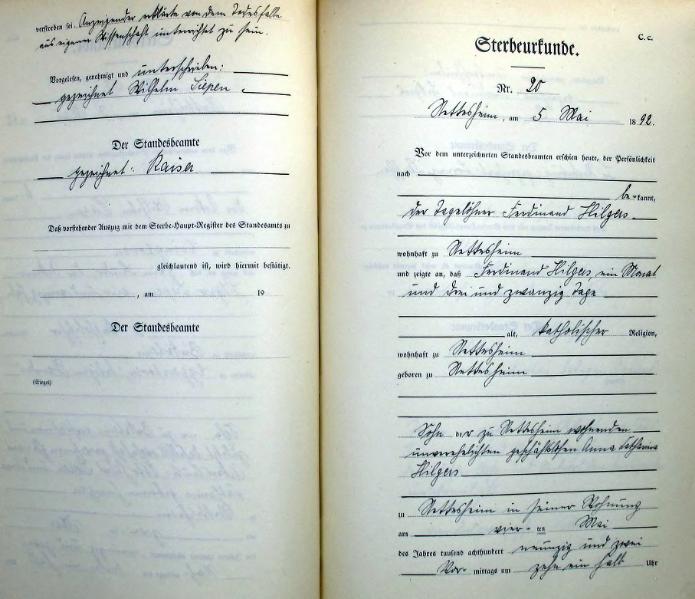 verstorben sei. Anzeigender erklärte von dem Todesfalle
aus eigener Wissenschaft unterrichtet zu sein.
Vorgelesen, genehmigt und unterschrieben:
gezeichnet Wilhelm Siepen.
Der Standesbeamte
gezeichnet: Kaiser
Daß vorstehender Auszug mit dem Sterbe-Haupt-Register des Standesamts zu
gleichlautend ist, wird hiermit bestätigt.
, am 19
Der Standesbeamte
(Siegel)
C. c.
Sterbeurkunde.
Nr. 20
Nettesheim, am 5 Mai 1892.
Vor dem unterzeichneten Standesbeamten erschien heute, der Persönlichkeit
nach
be-kannt,
der Tagelöhner Ferdinand Hilgers
wohnhaft zu Nettesheim
und zeigte an, daß Ferdinand Hilgers, ein Monat
und drei und zwanzig Tage
alt, katholischer Religion,
wohnhaft zu Nettesheim
geboren zu Nettesheim
Sohn der zu Nettesheim wohnenden
unverehelichten geschäftslosen Anna Catharina
Hilgers
zu Nettesheim in seiner Wohnung
am vier-ten Mai
des Jahres tausend achthundert neunzig und zwei
Vor-mittags um zehn ein halb Uhr